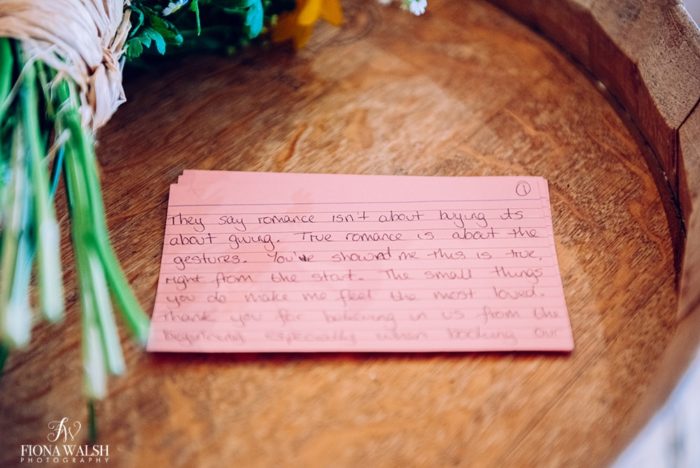 ①
They say romance isn't about buying its
about giving. True romance is about the
gestures. You've showed me this is true,
right from the start. The small things
you do make me feel the most loved.
Thank you for believing in us from the
beginning especially when booking our
FW
FIONA WALSH
PHOTOGRAPHY